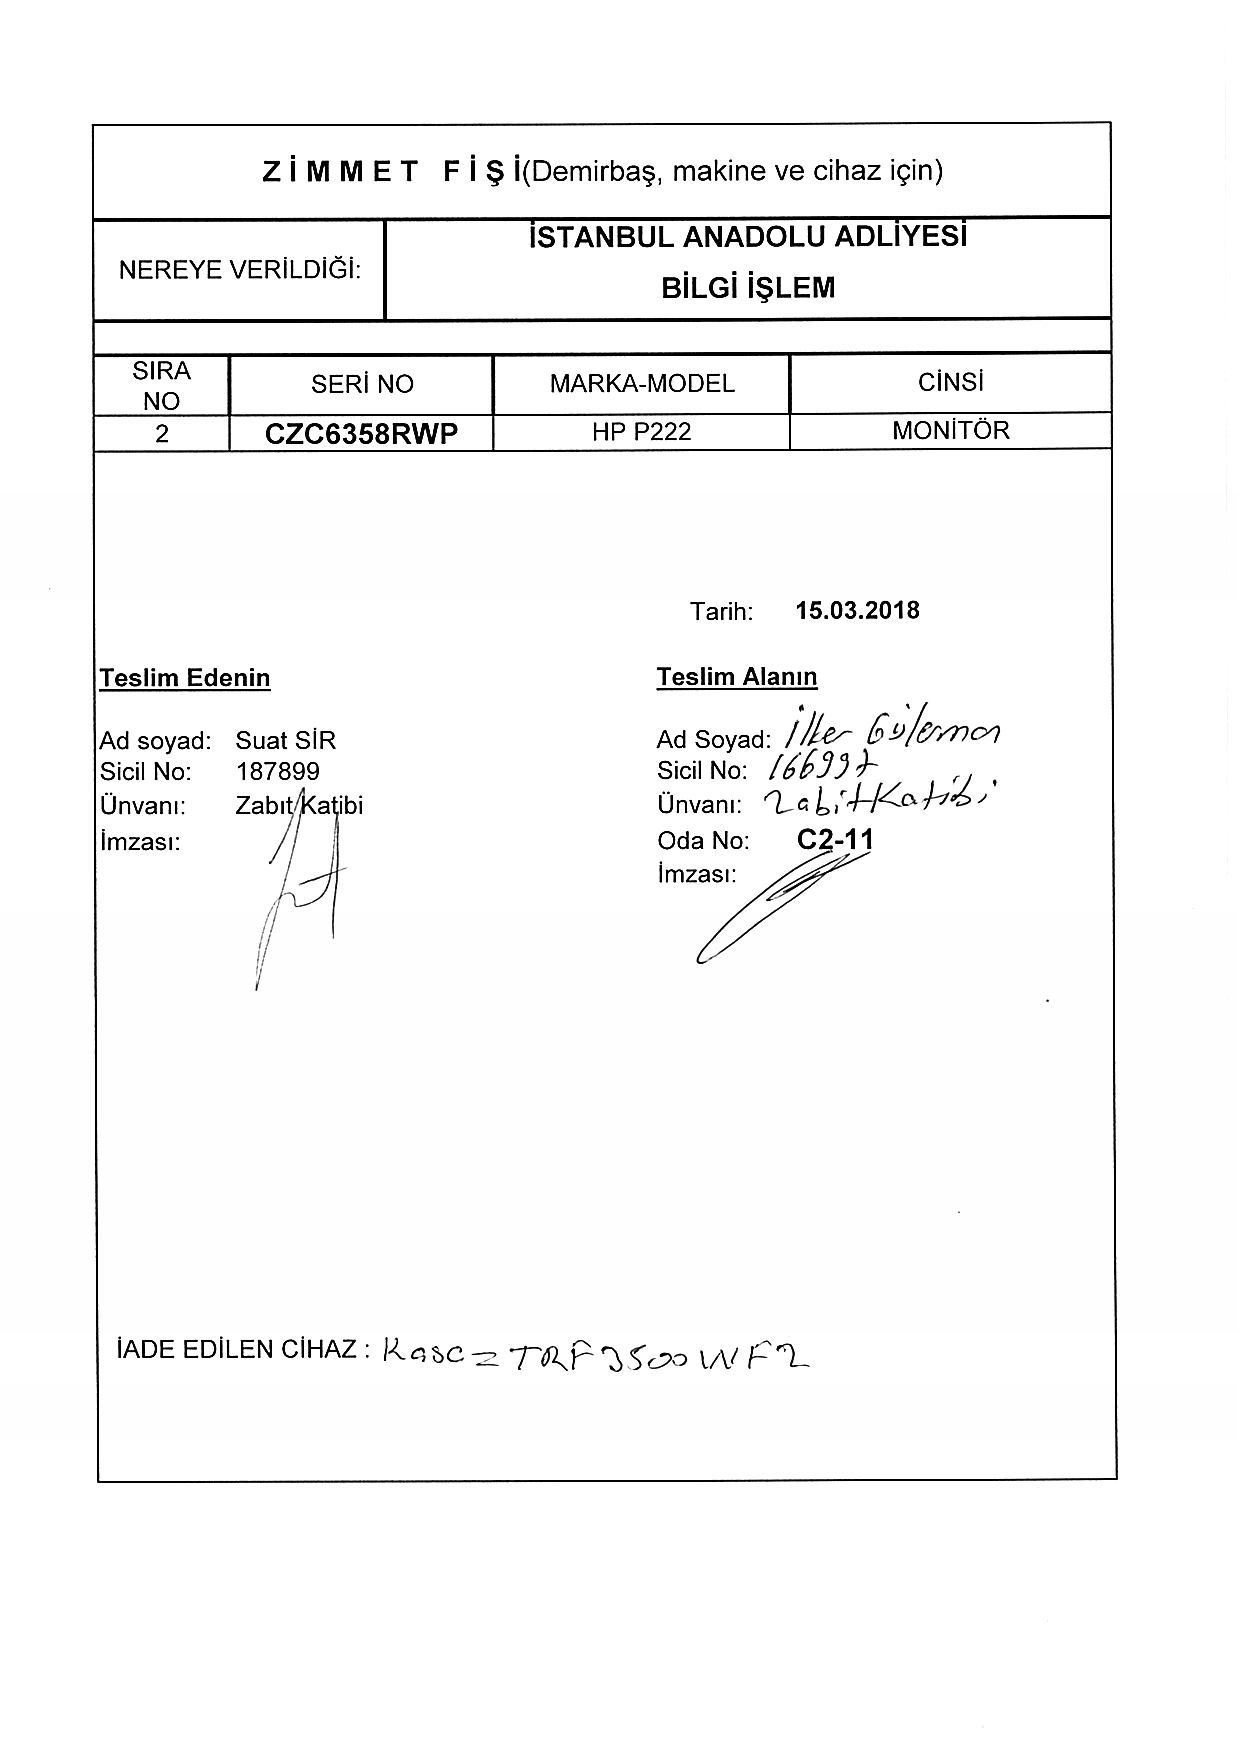 ZİMMET FİŞİ(Demirbaş, makine ve cihaz için)
NEREYE VERİLDİĞİ:
İSTANBUL ANADOLU ADLİYESİ
BİLGİ İŞLEM
SIRA NO SERİ NO MARKA-MODEL CİNSİ
2 CZC6358RWP HP P222 MONİTÖR
Tarih: 15.03.2018
Teslim Edenin
Ad soyad: Suat SİR
Sicil No: 187899
Ünvanı: Zabıt Katibi
İmzası:
Teslim Alanın
Ad Soyad: İlker Gülemen
Sicil No: 166997
Ünvanı: Zabit Katibi
Oda No: C2-11
İmzası:
İADE EDİLEN CİHAZ :